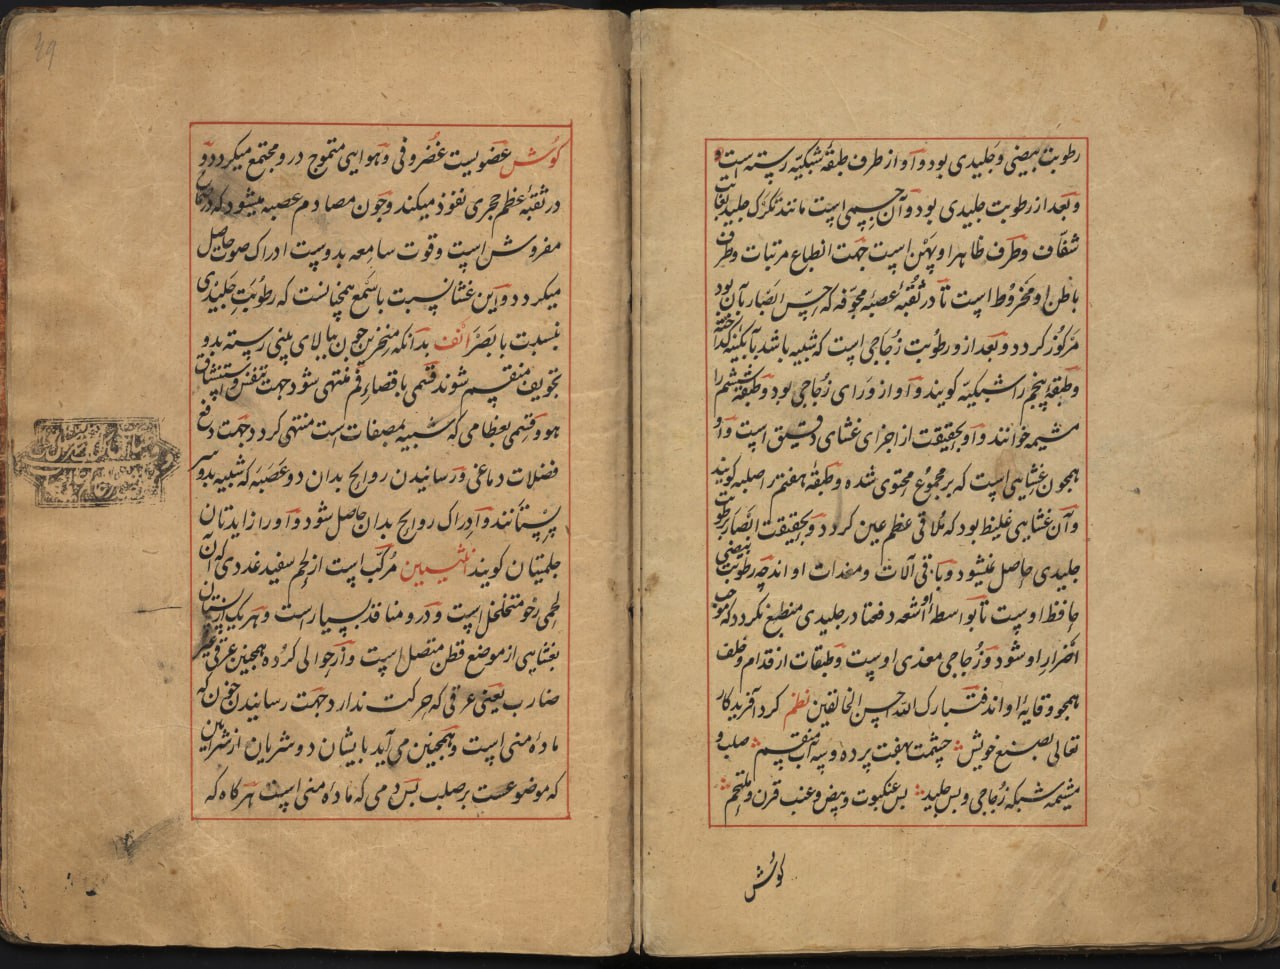 رطوبت بیضی و جلیدی بود و او از طرف طبقهٔ شبکیّه رسته است و
و بعد از رطوبت جلیدی بود و آن جسمی است مانند تکرک جلید بغایت
شفاف و طرف ظاهر او پهن است جهت انطباع مرتبات و طرف
باطن او مخروط است تا در ثقبهٔ عصبهٔ مجوفه که حس ابصار بآن بود
مرکوز کردد و بعد ازو رطوبت زجاجی است که شبیه باشد بآبکینه کداخته
و طبقهٔ پنجم را شبکیّه کویند و او از ورای زجاجی بود و طبقهٔ ششم را
مشیمه خوانند و او بحقیقت از اجزای غشای دقیق است و او
همچون غشایی است که بر مجموع محتوی شده و طبقهٔ هفتم را صلبه کویند
و آن غشایی غلیظ بود که ملاقی عظم عین کردد و بحقیقت ابصار برطوبت
جلیدی حاصل میشود و باقی آلات و معدات او اند چه رطوبت بیضی
حافظ اوست تا بواسطهٔ او اشعه دفعتا در جلیدی منطبع نکردد که موجب
اضرار او شود و زجاجی مغذی اوست و طبقات از قدام و خلف
همچو وقایهٔ او اند فتبارک الله احسن الخالقین نظم کرد آفریدکار
تعالی بصنع خویش چشمت بهفت پرده و سه آب منقسم صلب و
مشیمه شبکه زجاجی و بس جلید بس عنکبوت و بیض و عنب قرن و ملتحم
کوش
کوش عضویست غضروفی و هوایی متموج در و مجتمع میکردد و
در ثقبهٔ عظم حجری نفوذ میکند و چون مصادم عصبه میشود که در صماخ
مفروش است و قوت سامعه بدوست ادراک صوت حاصل
میکردد و این غشا نسبت با سمع همچنانست که رطوبت جلیدی
بنسبت با بصر انف بدانکه منخرین چون ببالای بینی رسیده بدو
تجویف منقسم شوند قسمی باقصاء فم منتهی شود جهت تنفس و استنشاق
هوا و قسمی بعظامی که شبیه بمصفات است منتهی کردد جهت دفع
فضلات دماغی و رسانیدن روایح بدان دو عصبه که شبیه بدو سر
پستانند و ادراک روایح بدان حاصل شود و او را زایدتان
حلمتیان کویند انثیین مرکب است از لحم سفید غددی که آن
لحمی رخو متخلخل است و درو منافذ بسیار است و هر یک از ایشان
بغشایی از موضع قطن متصل است و از حوالی کرده همچنین عرقی غیر
ضارب یعنی عرقی که حرکت ندارد جهت رسانیدن خون که
مادهٔ منی است و همچنین می آید بایشان دو شریان از شرایین
که موضوعست بر صلب بس دمی که مادهٔ منی است هر کاه که